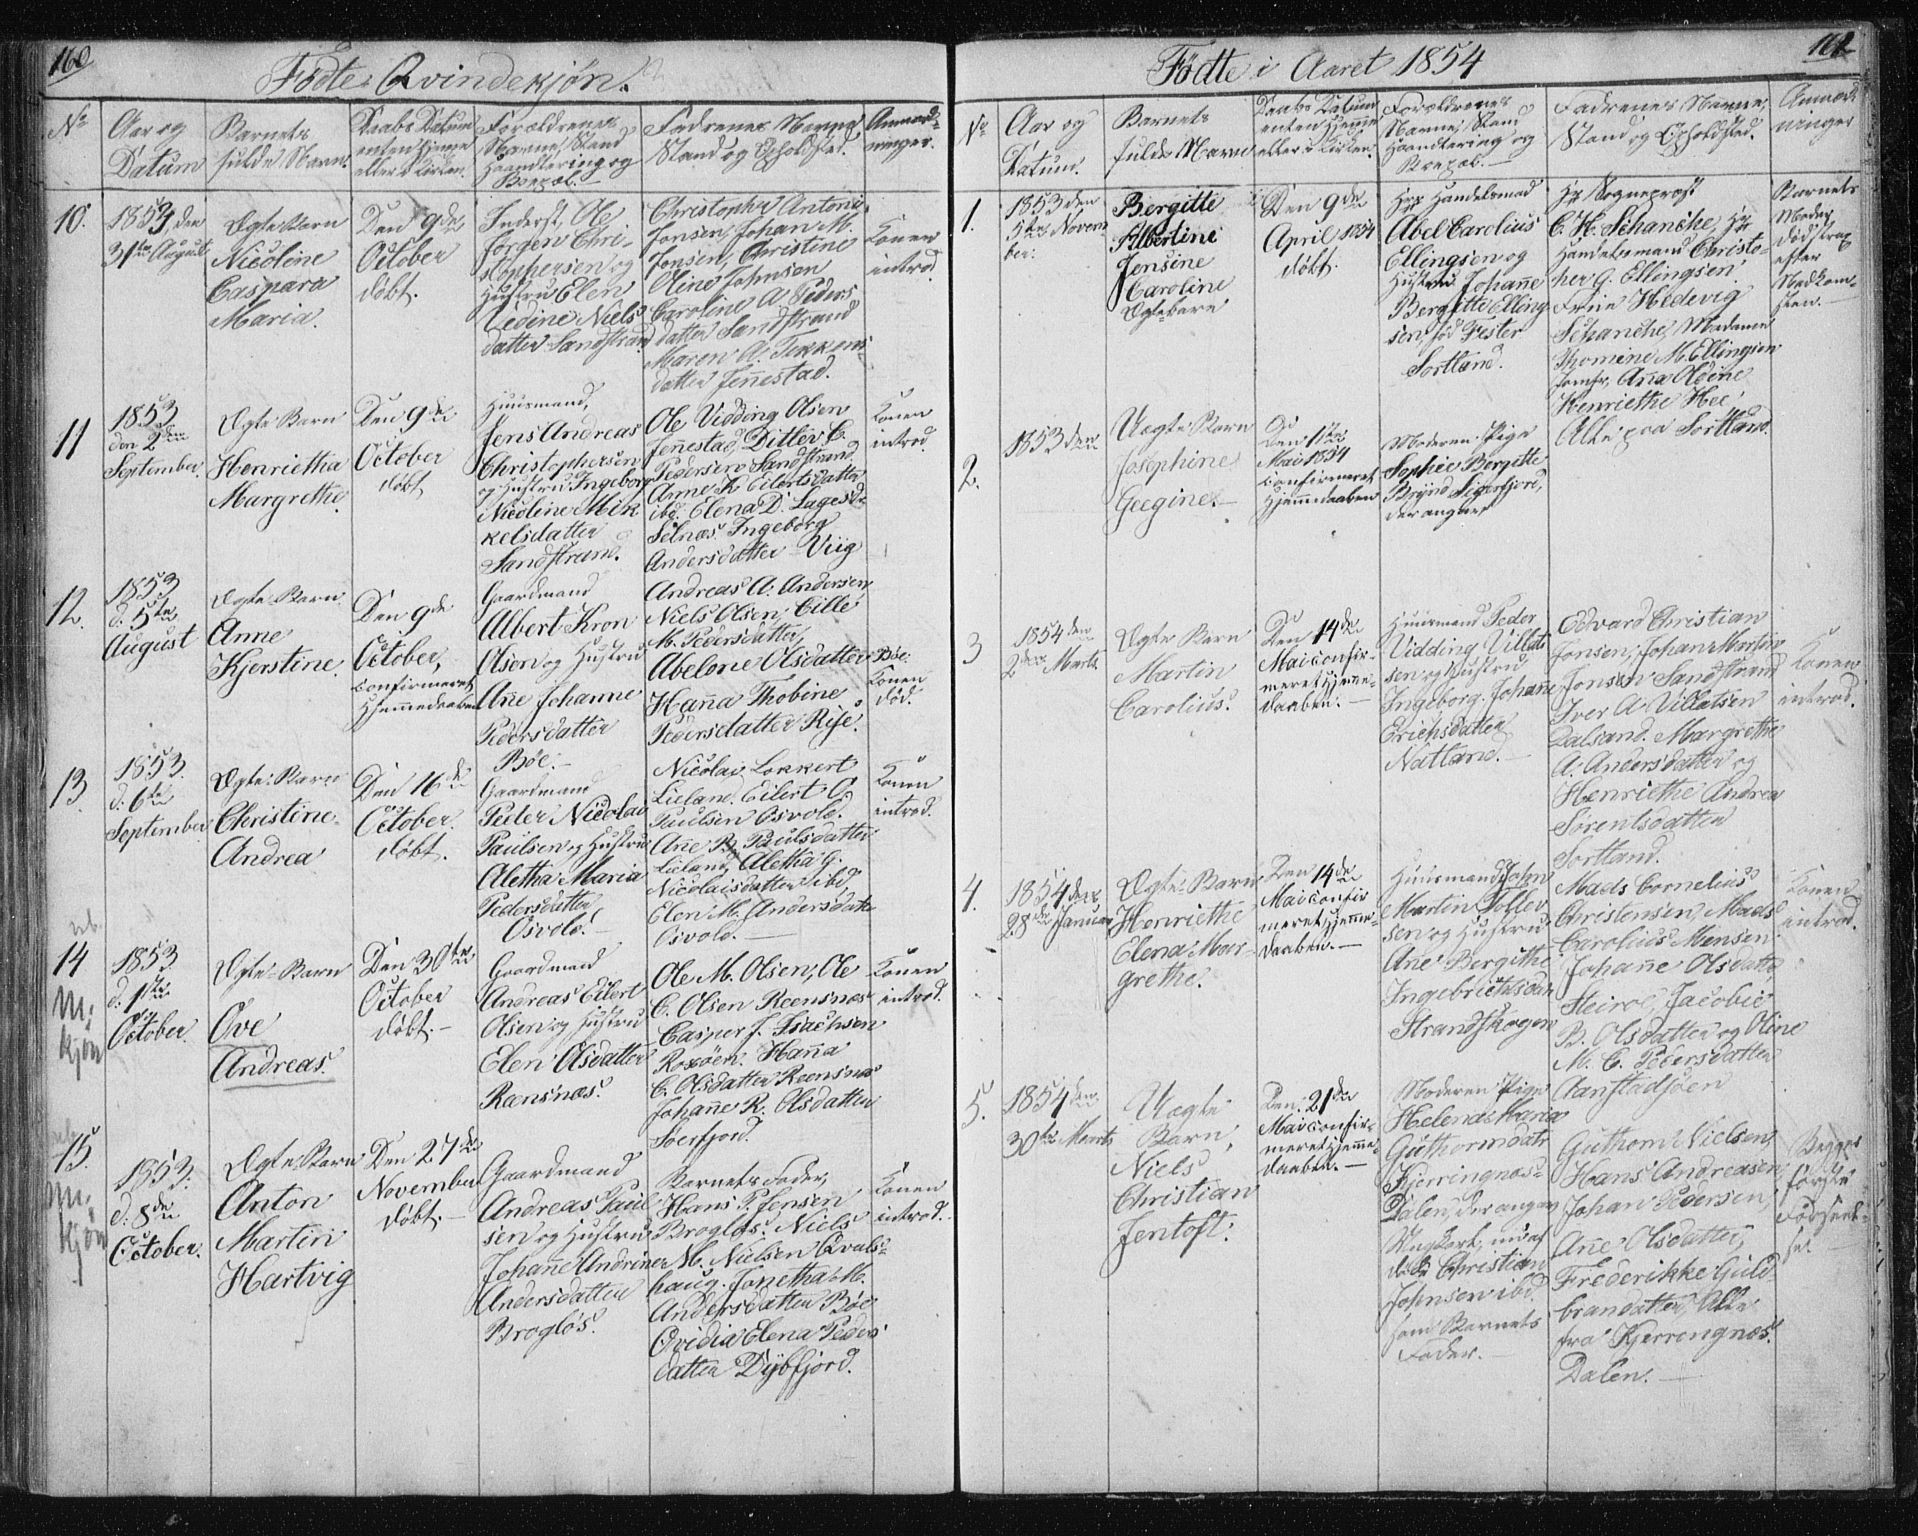 160
Fødte Qvindekjøn.
No
Aar og
Datum
Barnets
fulde Navn.
Daabs Datum
enten hjemme
eller i Kirken.
Forældrenes
Navne, Stand
Haandtering og
Bopæl.
Faddrenes Navne
Stand og Opholdsted.
Anmærk-
ninger.
10.
1853 den
31te August
Ægte Barn
Nicoline
Caspara
Maria.
Den 9de
October
døbt.
Inderst Ole
Jørgen Chri-
stophersen og
Hustru Elen
Ledine Niels
datter Sandstrand
Christopher Antoni
Jonsen, Johan M.
Jonsen, Christine
Oline Johnsen
Caroline A Peders
datter Sandstrand
Maren A.
datter Jennestad.
Konen
introd.
11
1853
den 2den
September.
Ægte Barn
Henrietha
Margrethe.
Den 9de
October
døbt
Huusmand,
Jens Andreas
Christophersen
og Hustru Ingeborg
Nicoline Mik
kelsdatter
Sandstrand.
Ole Vidding Olsen
Jennestad, Ditlev C.
Pedersen Sandstrand
Anne K Eilertsdatter
ibd. Elena D. Lagesdr
Selnæs Ingeborg
Andersdatter Viig
Konen
introd.
12.
1853
d. 5te
August
Ægte Barn.
Anne
Kjerstine.
Den 9de
October,
confirmeret
Hjemmedaaben
Gaardmand
Albert Kron
Olsen og Hustru
Ane Johanne
Pedersdatter
Bøe.
Andreas A. Andersen
Niels Olsen, Cille
M. Pedersdatter,
Abelone Olsdatter Bøe.
Hanna Thobine
Pedersdatter Rise.
Konen
død.
13
1853.
d. 6te
September
Ægte Barn
Christine
Andrea
Den 16de
October.
døbt.
Gaardmand
Peder Nicolai
Paulsen og Hustru
Aletha Maria
Pedersdatter
Osvold.
Nicolai Lokkert
Lieland. Eilert O.
Paulsen Osvold.
Ane B. Paulsdatter
Lieland, Aletha G.
Nicolaisdatter ibd
Elen M. Andersdatter
Osvold.
Konen
introd.
14
M.
kjøn
1853.
d. 1ste
October.
Ægte Barn
Ove
Andreas.
Den 30te
October
døbt.
Gaardmand
Andreas Eilert
Olsen og Hustru
Elen Olsdatter
Rænsnæs.
Ole M. Olsen, Ole
C. Olsen Reensnæs
Casper J. Isachsen
Roksøen. Hanna
C. Olsdatter Reensnæs
Johanne R. Olsdatter
Soerfjord.
Konen
introd.
15.
M.
kjøn
1853.
d. 8de
October.
Ægte Barn
Anton
Martin
Hartvig
Den 27de
November
døbt.
Gaardmand
Andreas Paul
sen og Hustru
Johanne Andrine
Andersdatter
Brogløs.
Barnets Fader,
Hans P. Jensen
Brogløs. Niels
M. Nielsen Qvals-
haug. Jonetha M.
Andersdatter Bøe
Ovidia Elena Peders
datter Dybfjord.
Konen
introd.
161
Fødte i Aaret 1854
No
Aar og
Datum.
Barnets
fulde Navn
Daabs Datum
enten hjemme
eller i Kirken.
Forældrenes
Navne, Stand
Haandtering og
Bopæl.
Faddrenes Navne,
Stand og Opholdsted.
Anmærk-
ninger
1.
1853 den
5te Novem
ber.
Bergitte
Albertine
Jensine
Caroline
Ægtebarn
Den 9de
April 1854
døbt.
Hrr Handelsmad
Abel Carolius
Ellingsen og
Hustru Johanne
Bergitte Elling
sen, fød Fester
Sortland.
Hr Sognepræst
C. H. Schanche, Hr
Handelsmand Christo-
her G. Ellingsen.
Frue Hedevig
Schanche, Madame
Thomine M. Ellingsen
Jomfr. Ana Oldine
Henriethe Hee,
Alle paa Sortland.
Barnets
Moder
død strax
efter
Nedkom-
sten.
2.
1853 den
Uægte Barn
Josephine
Geegine.
Den 1ste
Mai 1854
confirmeret
Hjemmedaaben
Moderen Pige
Sophie Bergitte
Brynd Sigerfjord,
der angav
3
1854 den
2den Marts
Ægte Barn
Martin
Carolius.
Den 14de
Mai confir-
meret Hjemme-
daaben.
Huusmand Peder
Vidding Villats
sen og Hustru
Ingeborg Johanne
Erichsdatter
Natland.
Edvard Christian
Jonsen, Johan Martin
Jonsen Sandstrand
Iver A. Villatsen
Dalsand. Margrethe
A. Andersdatter og
Henriethe Andrea
Sørentsdatter
Sortland.
Konen
introd.
4.
1854 den
28de Januar
Ægte Barn
Henriethe
Elena Mar-
grethe.
Den 14de
Mai confir
meret Hjemme-
daaben.
Huusmand John
Martin Tollev
sen og Hustru
Ane Bergithe
Ingebrichtsdatr
Strandskogen
Mads Cornelius
Christensen, Mads
Carolius Mensen
Johanne Olsdatter
Steiroe, Jacobie
B. Olsdatter og Oline
M. C. Pedersdatter
Aanstadsjøen
Konen
introd.
5.
1854 den
30te Marts
Uægte
Barn,
Niels
Christian
Jentoft.
Den 21de
Mai confir-
meret Hjemme-
daaben.
Moderen Pige
Helena Maria
Guthormdatr
Kjerringnæs-
Dalen, der angav
Ungkarl, nu af
død Christian
Johnsen ibd.
som Barnets
Fader.
Guthorm Nielsen,
Hans Andreasen
Johan Pedersen,
Ane Olsdatter,
Frederikke Guld-
brandsdatter, Alle
fra Kjerringnæs.
Dalen.
Begges
første
Forseel-
se